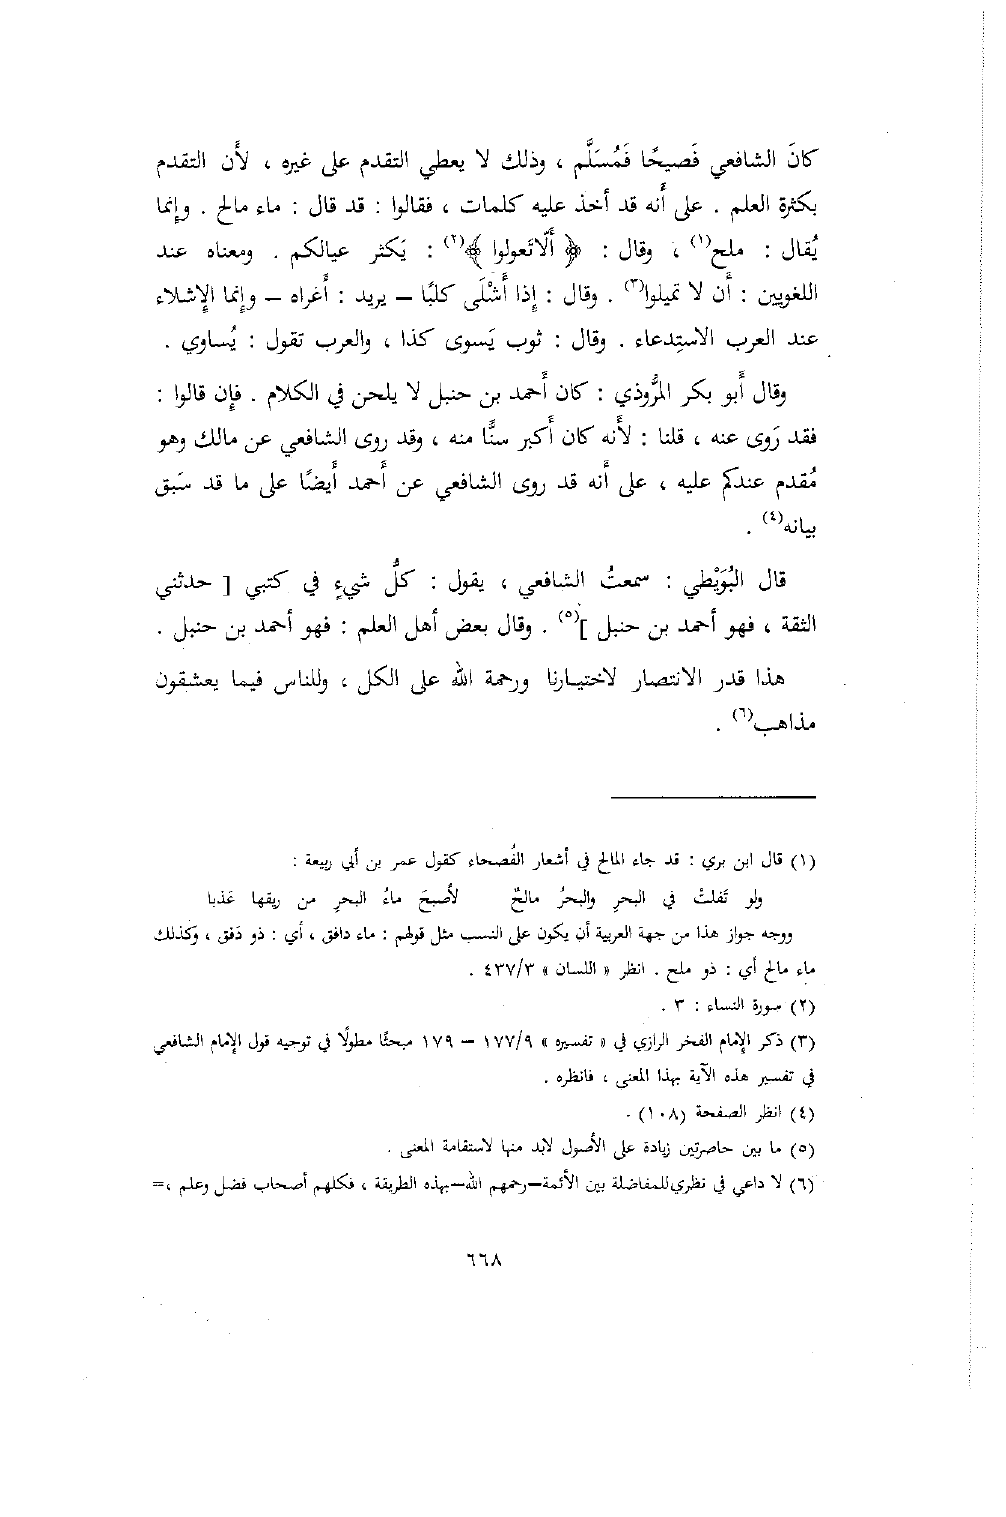 كانَ الشافعي فَصيحًا فَمُسَلَّم ، وذلك لا يعطي التقدم على غيره ، لأَن التقدم
بكثرة العلم . على أَنه قد أخذ عليه كلمات ، فقالوا : قد قال : ماء مالح . وإِنما
يُقال : ملح(١) ، وقال : ﴿ أَلّاتَعولوا ﴾(٢) : يَكثر عيالكم . ومعناه عند
اللغويين : أَن لا تميلوا(٣) . وقال : إِذا أَشْلَى كلبًا – يريد : أَغراه – وإِنما الإِشلاء
عند العرب الاستِدعاء . وقال : ثوب يَسوى كذا ، والعرب تقول : يُساوي .
وقال أَبو بكر المرُّوذي : كان أَحمد بن حنبل لا يلحن في الكلام . فإِن قالوا :
فقد رَوى عنه ، قلنا : لأَنه كان أَكبر سنًّا منه ، وقد روى الشافعي عن مالك وهو
مُقدم عندكم عليه ، على أَنه قد روى الشافعي عن أَحمد أَيضًا على ما قد سَبق
بيانه(٤) .
قال البُوَيْطي : سمعتُ الشافعي ، يقول : كلُّ شيءٍ في كتبي [ حدثني
الثقة ، فهو أحمد بن حنبل ](٥) . وقال بعض أهل العلم : فهو أحمد بن حنبل .
هذا قدر الانتصار لاختيارنا ورحمة الله على الكل ، وللناس فيما يعشقون
مذاهب(٦) .
(١) قال ابن بري : قد جاء المالح في أشعار الفُصحاء كقول عمر بن أبي ربيعة :
ولو تَفلتْ في البحرِ والبحرُ مالحٌ لأصبحَ ماءُ البحرِ من ريقها عَذبا
ووجه جواز هذا من جهة العربية أن يكون على النسب مثل قولهم : ماء دافق ، أي : ذو دَفق ، وكذلك
ماء مالح أي : ذو ملح . انظر « اللسان » ٤٣٧/٣ .
(٢) سورة النساء : ٣ .
(٣) ذكر الإمام الفخر الرازي في « تفسيره » ١٧٧/٩ – ١٧٩ مبحثًا مطولًا في توجيه قول الإمام الشافعي
في تفسير هذه الآية بهذا المعنى ، فانظره .
(٤) انظر الصفحة (١٠٨) .
(٥) ما بين حاصرتين زيادة على الأصول لابد منها لاستقامة المعنى .
(٦) لا داعي في نظري للمفاضلة بين الأئمة–رحمهم الله–بهذه الطريقة ، فكلهم أصحاب فضل وعلم ،=
٦٦٨